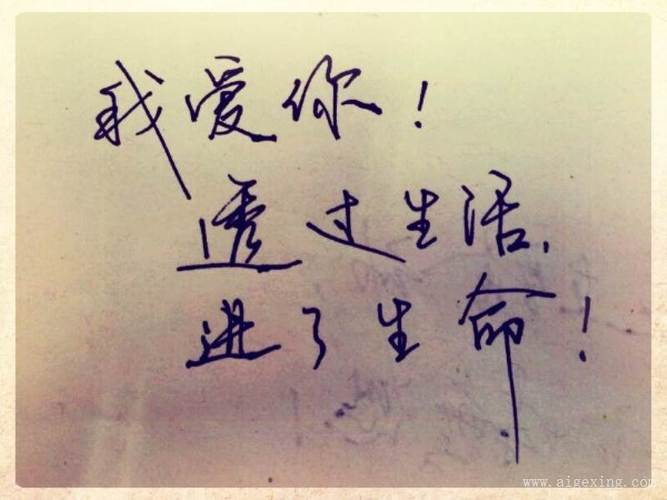 我爱你！
透过生活、
进了生命！
www.aigexing.com